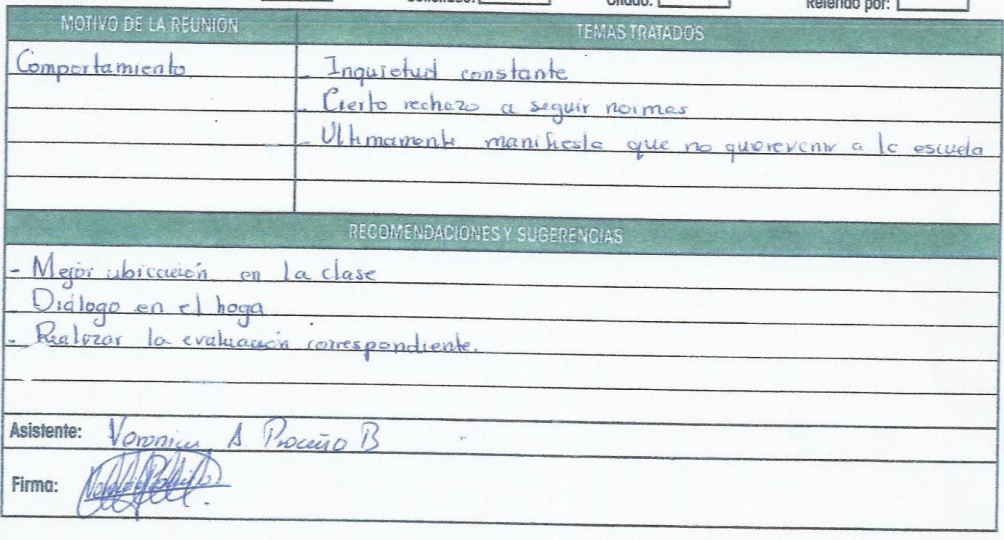 Solicitado: Citado: Referido por:
MOTIVO DE LA REUNIÓN TEMAS TRATADOS
Comportamiento - Inquietud constante
- Cierto rechazo a seguir normas
- Ultimamente manifiesta que no querer venir a la escuela
RECOMENDACIONES Y SUGERENCIAS
- Mejor ubicación en la clase
- Diálogo en el hoga
- Realizar la evaluación correspondiente.
Asistente: Veronica A B
Firma: